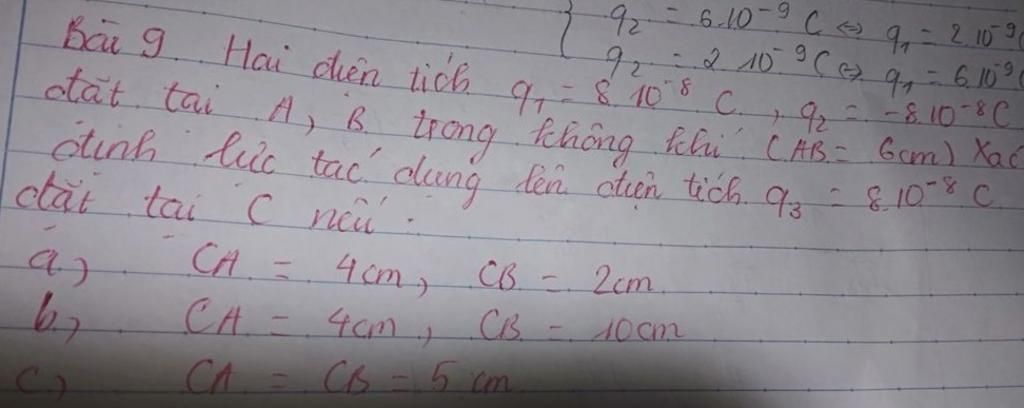 { q₂ = 6.10⁻⁹ C ⇔ q₁ = 2.10⁻⁹
q₂ = 2 10⁻⁹ C ⇔ q₁ = 6.10⁻⁹
Bài 9 Hai điện tích q₁ = 8 10⁻⁸ C , q₂ = -8.10⁻⁸ C
đặt tại A, B trong không khí (AB = 6cm) Xác
định lực tác dụng lên điện tích q₃ = 8.10⁻⁸ C
đặt tại C nếu :
a) CA = 4cm, CB = 2cm
b, CA = 4cm, CB = 10cm
c) CA = CB = 5 cm